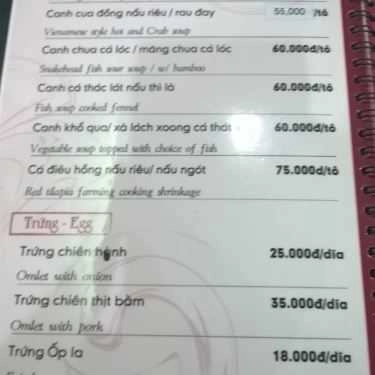 Canh cua đồng nấu riêu / rau đay 55.000 /tô
Vietnamese style hot and Crab soup
Canh chua cá lóc / măng chua cá lóc 60.000đ/tô
Snakehead fish sour soup / w/ bamboo
Canh cá thác lát nấu thì là 60.000đ/tô
Fish soup cooked fennel
Canh khổ qua/ xà lách xoong cá thát 60.000đ/tô
Vegetable soup topped with choice of fish
Cá điêu hồng nấu riêu/ nấu ngót 75.000đ/tô
Red tilapia farming cooking shrinkage
Trứng - Egg
Trứng chiên hành 25.000đ/dĩa
Omlet with onion
Trứng chiên thịt bằm 35.000đ/dĩa
Omlet with pork
Trứng Ốp la 18.000đ/dĩa